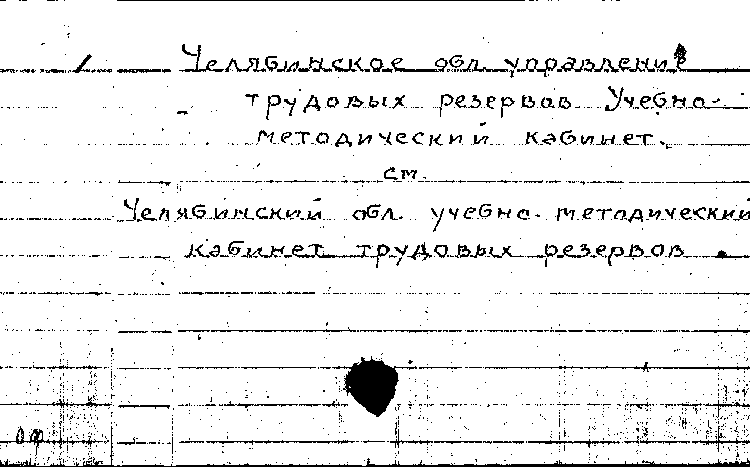 Челябинское обл. управление
трудовых резервов Учебно-
методический кабинет.
см.
Челябинский обл. учебно-методический
кабинет трудовых резервов.
оф.